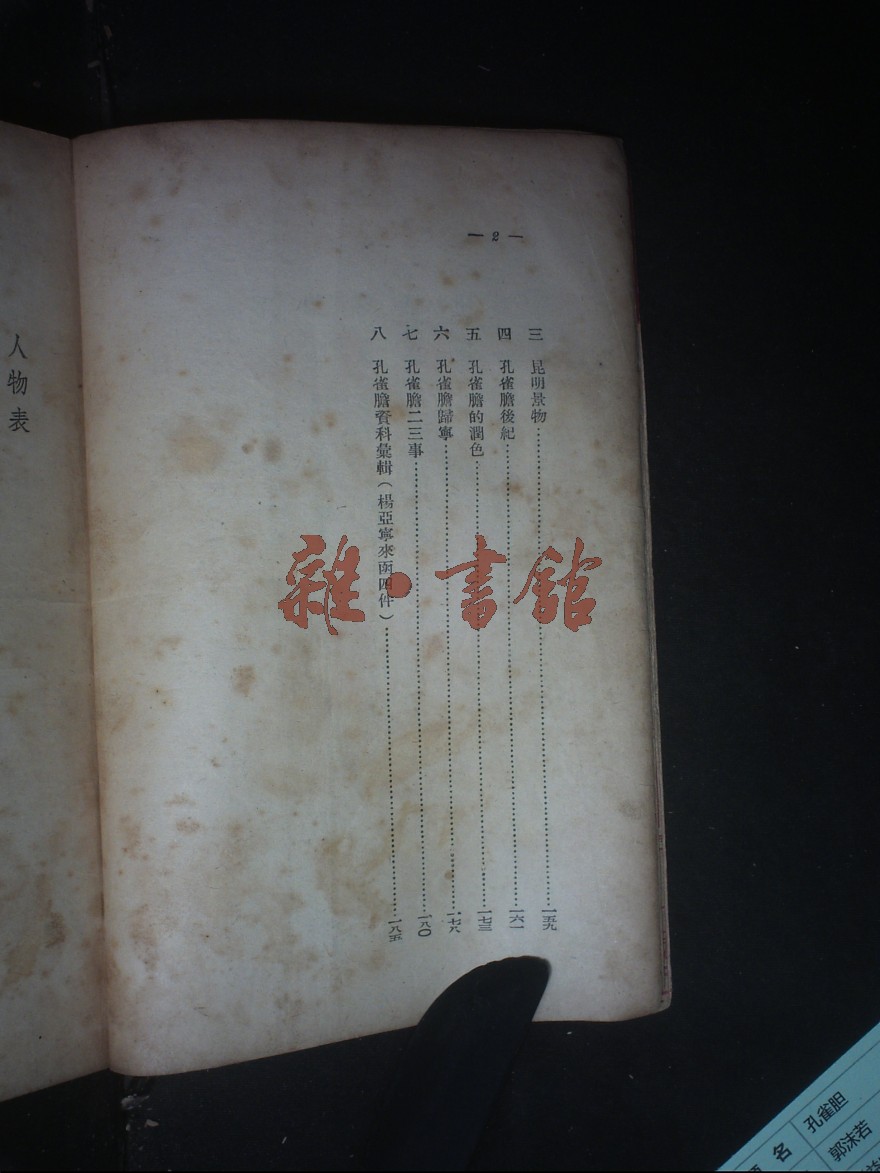 — 2 —
三 昆明景物……一五九
四 孔雀膽後紀……一六一
五 孔雀膽的潤色……一七三
六 孔雀膽歸寧……一七八
七 孔雀膽二三事……一八〇
八 孔雀膽資料彙輯(楊亞寧來函四件)……一八五
人物表
雜·書館
名 孔雀胆
郭沫若